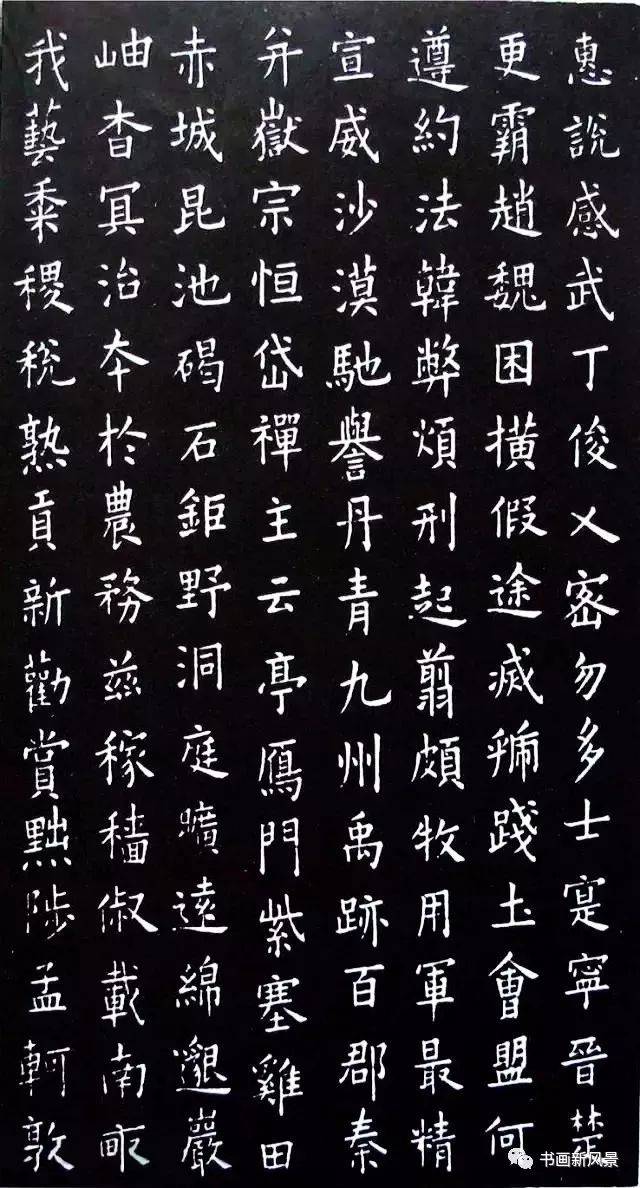 惠說感武丁俊乂密勿多士寔寧晉楚
更霸趙魏困撗假途滅虢踐圡會盟何
遵約法韓弊煩刑起翦頗牧用軍最精
宣威沙漠馳譽丹青九州禹跡百郡秦
并嶽宗恒岱禪主云亭鴈門紫塞雞田
赤城昆池碣石鉅野洞庭曠遠綿邈巖
岫杳冥治本於農務茲稼穡俶載南畝
我藝黍稷稅熟貢新勸賞黜陟孟軻敦
书画新风景